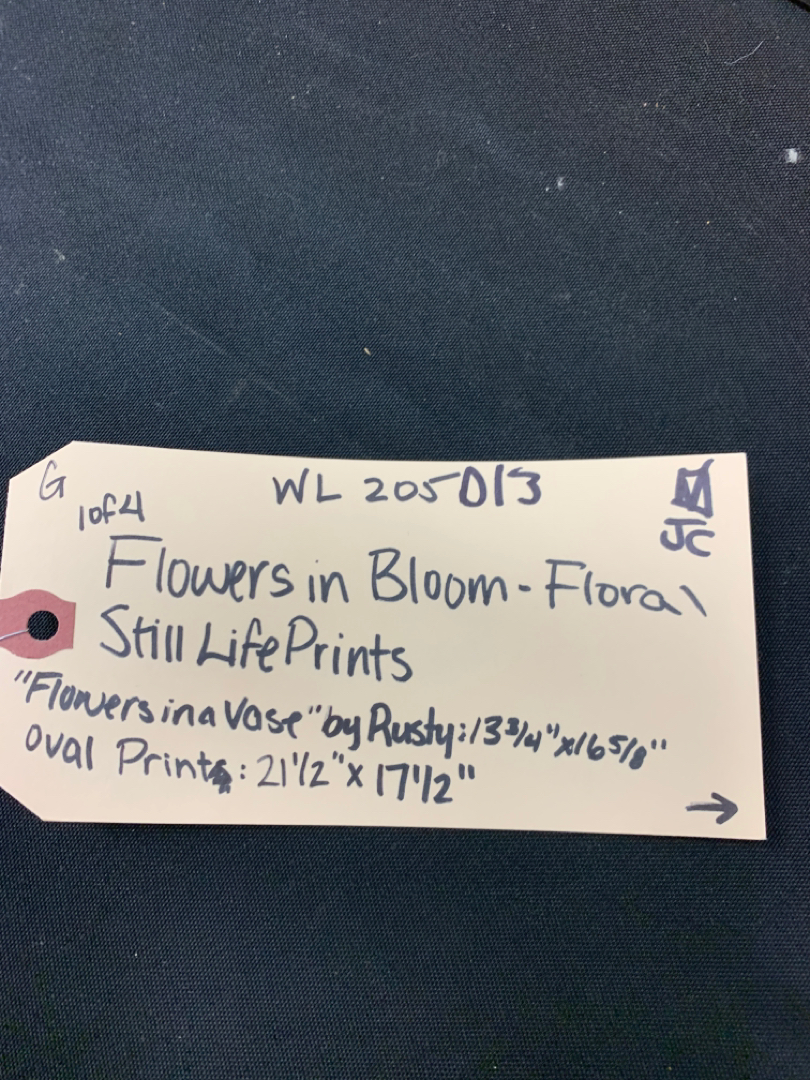 G WL 205D13
1 of 4 JC
Flowers in Bloom - Floral
Still Life Prints
"Flowers in a Vase" by Rusty: 13 3/4" x 16 5/8"
Oval Print: 21 1/2" x 17 1/2"
→